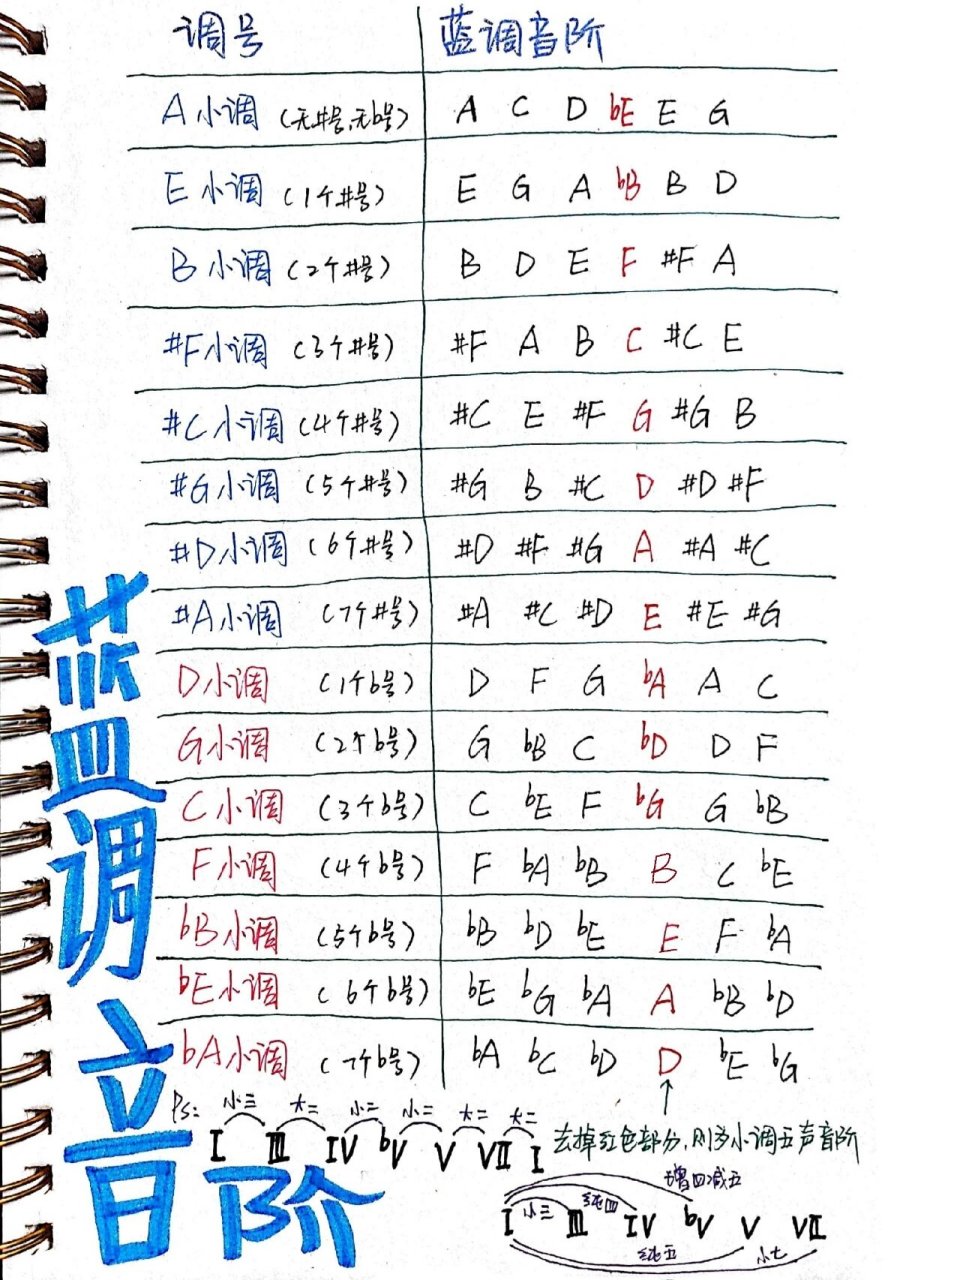 调号 蓝调音阶
A小调 (无#号,无b号) A C D bE E G
E小调 (1个#号) E G A bB B D
B小调 (2个#号) B D E F #F A
#F小调 (3个#号) #F A B C #C E
#C小调 (4个#号) #C E #F G #G B
#G小调 (5个#号) #G B #C D #D #F
#D小调 (6个#号) #D #F #G A #A #C
#A小调 (7个#号) #A #C #D E #E #G
D小调 (1个b号) D F G bA A C
G小调 (2个b号) G bB C bD D F
C小调 (3个b号) C bE F bG G bB
F小调 (4个b号) F bA bB B C bE
bB小调 (5个b号) bB bD bE E F bA
bE小调 (6个b号) bE bG bA A bB bD
bA小调 (7个b号) bA bC bD D bE bG
蓝调音阶
Ps: 小三 大二 小二 小二 大二 大二
I III IV bV V VII I
去掉红色部分,则为小调五声音阶
增四减五
小三 纯四
I III IV bV V VII
纯五 小七